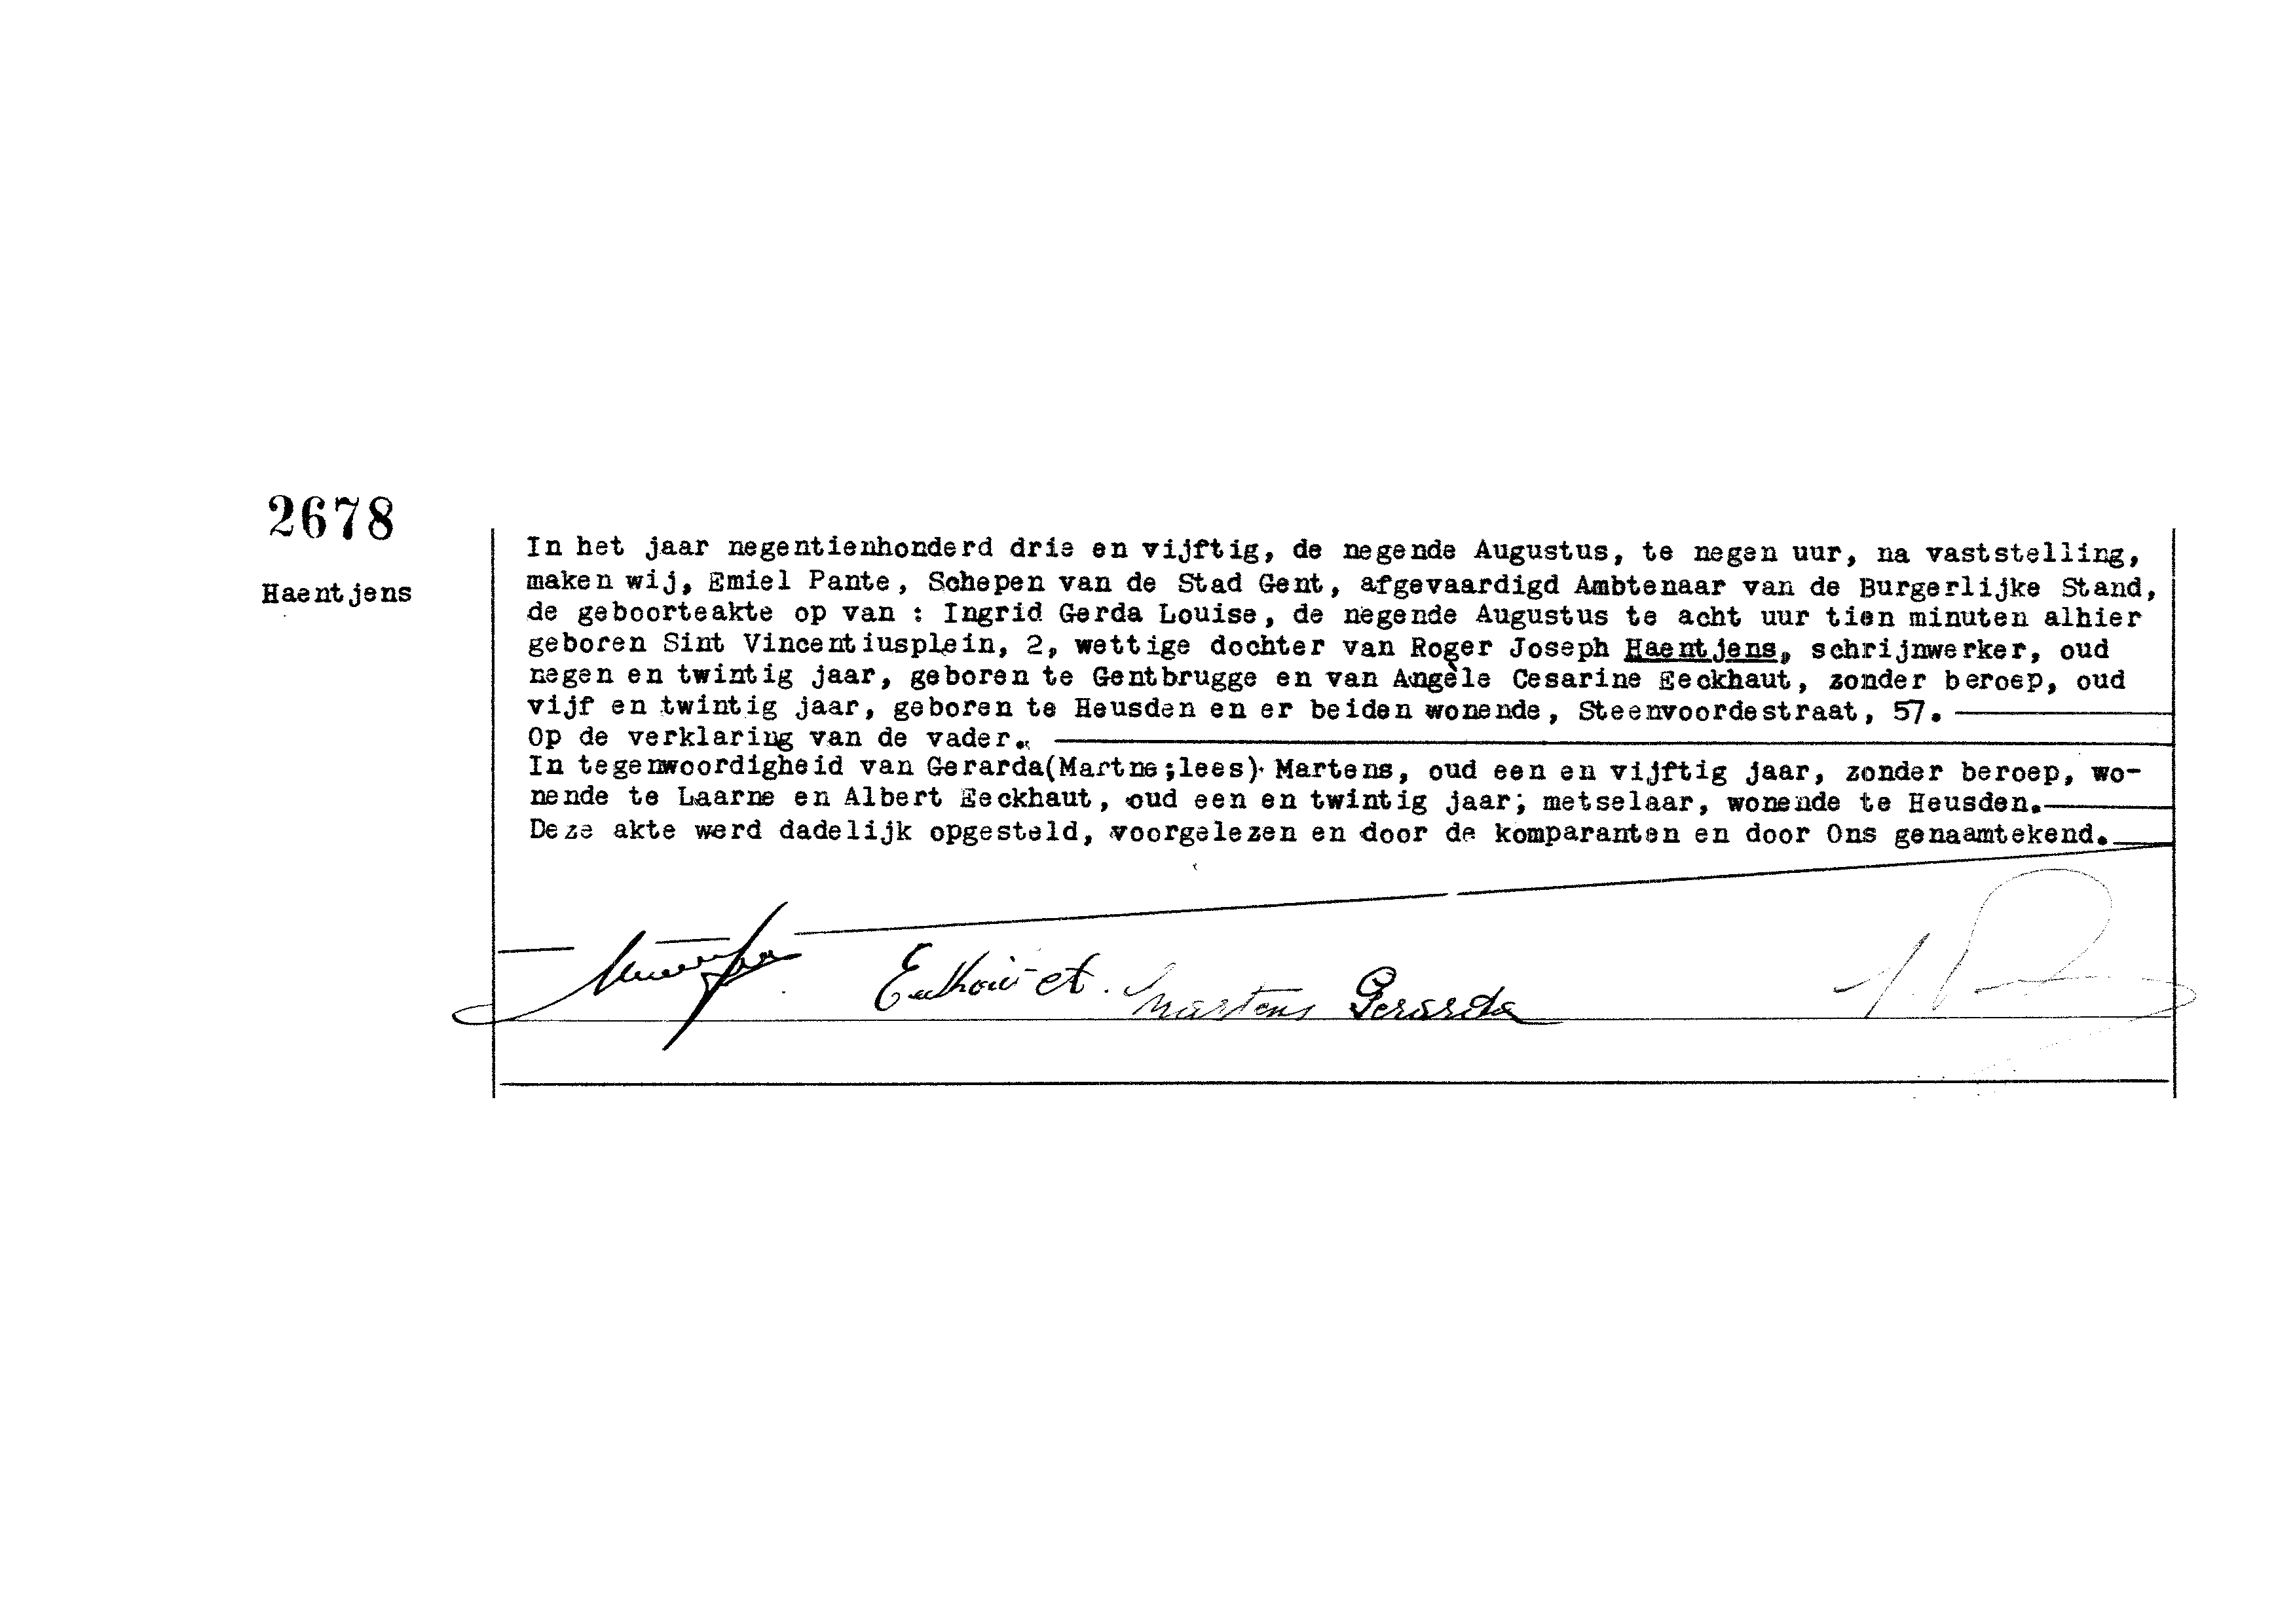 2678
Haentjens
In het jaar negentienhonderd drie en vijftig, de negende Augustus, te negen uur, na vaststelling,
maken wij, Emiel Pante, Schepen van de Stad Gent, afgevaardigd Ambtenaar van de Burgerlijke Stand,
de geboorteakte op van : Ingrid Gerda Louise, de negende Augustus te acht uur tien minuten alhier
geboren Sint Vincentiusplein, 2, wettige dochter van Roger Joseph Haentjens, schrijnwerker, oud
negen en twintig jaar, geboren te Gentbrugge en van Angèle Cesarine Eeckhaut, zonder beroep, oud
vijf en twintig jaar, geboren te Heusden en er beiden wonende, Steenvoordestraat, 57.
Op de verklaring van de vader.
In tegenwoordigheid van Gerarda(Martne;lees) Martens, oud een en vijftig jaar, zonder beroep, wo-
nende te Laarne en Albert Eeckhaut, oud een en twintig jaar; metselaar, wonende te Heusden.
Deze akte werd dadelijk opgesteld, voorgelezen en door de komparanten en door Ons genaamtekend.
Martens Gerarda